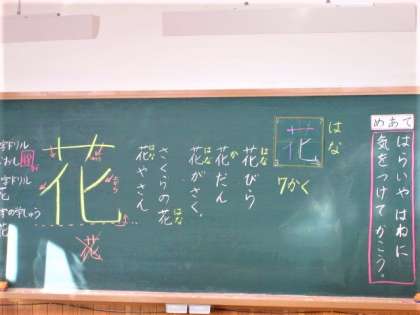 めあて
はらいや はねに
気をつけて かこう。
はな
花
7かく
花びら
はな
花だん
か
花がさく。
はな
さくらの花
はな
花やさん
はな
花
花
字ドリル
字ドリル
花